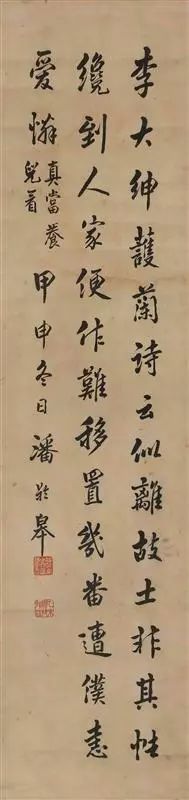 李大紳護蘭詩云似離故土非其性
纔到人家便作難移置幾番遭僕恚
愛憐真當養兒看甲申冬日潘齡皋